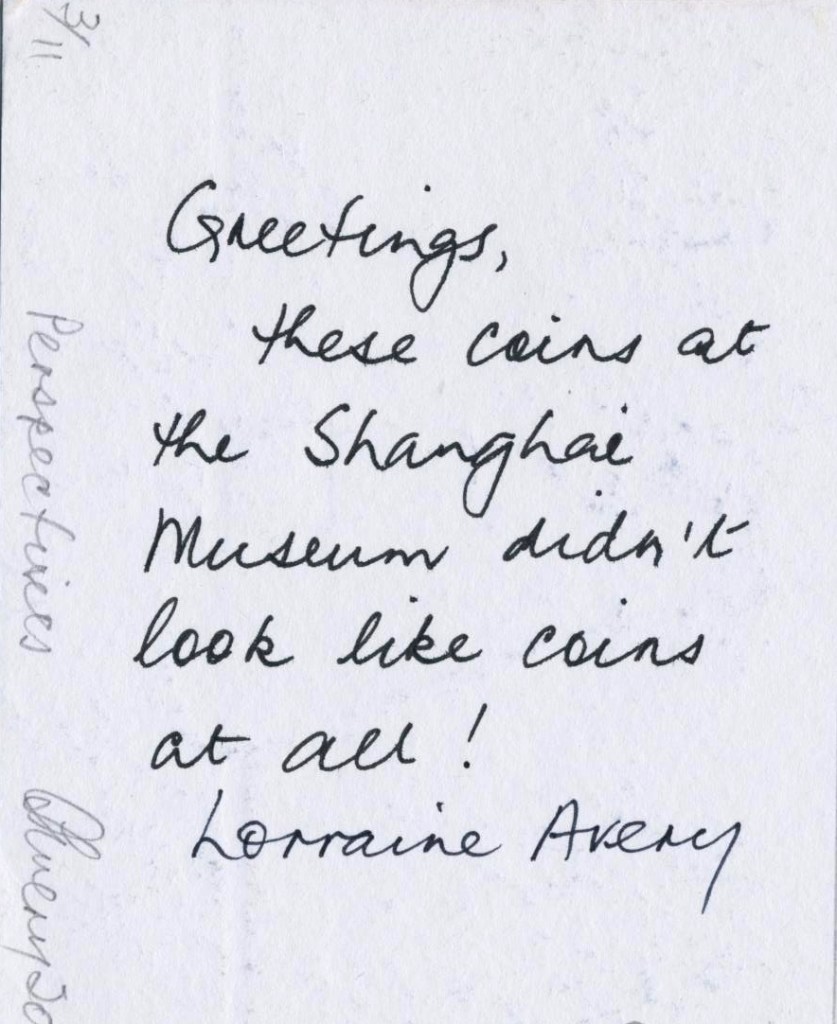 Greetings,
these coins at
the Shanghai
Museum didn't
look like coins
at all!
Lorraine Avery
3/11
Perspectives